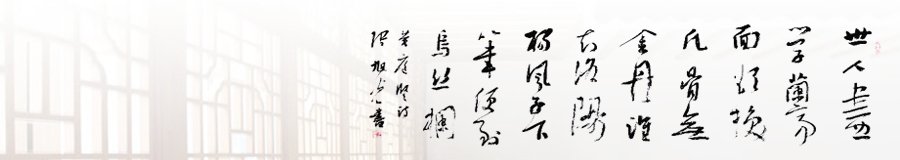 世人盡
學蘭亭
面欲換
凡骨無
金丹誰
知洛陽
楊風子下
筆便到
烏絲欄
黃庭堅詩
張旭光書